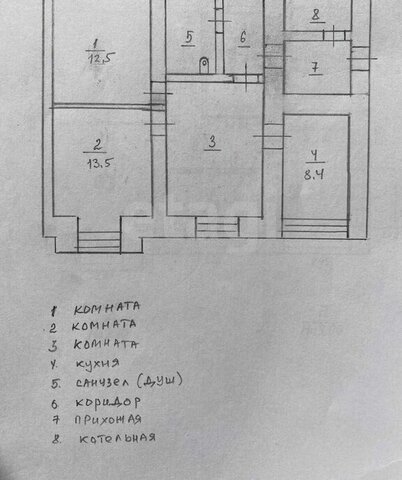 8
1
12.5
5
6
7
2
13.5
3
4
8.4
1 КОМНАТА
2 КОМНАТА
3 КОМНАТА
4. КУХНЯ
5. САНУЗЕЛ (ДУШ)
6 КОРИДОР
7 ПРИХОЖАЯ
8. КОТЕЛЬНАЯ